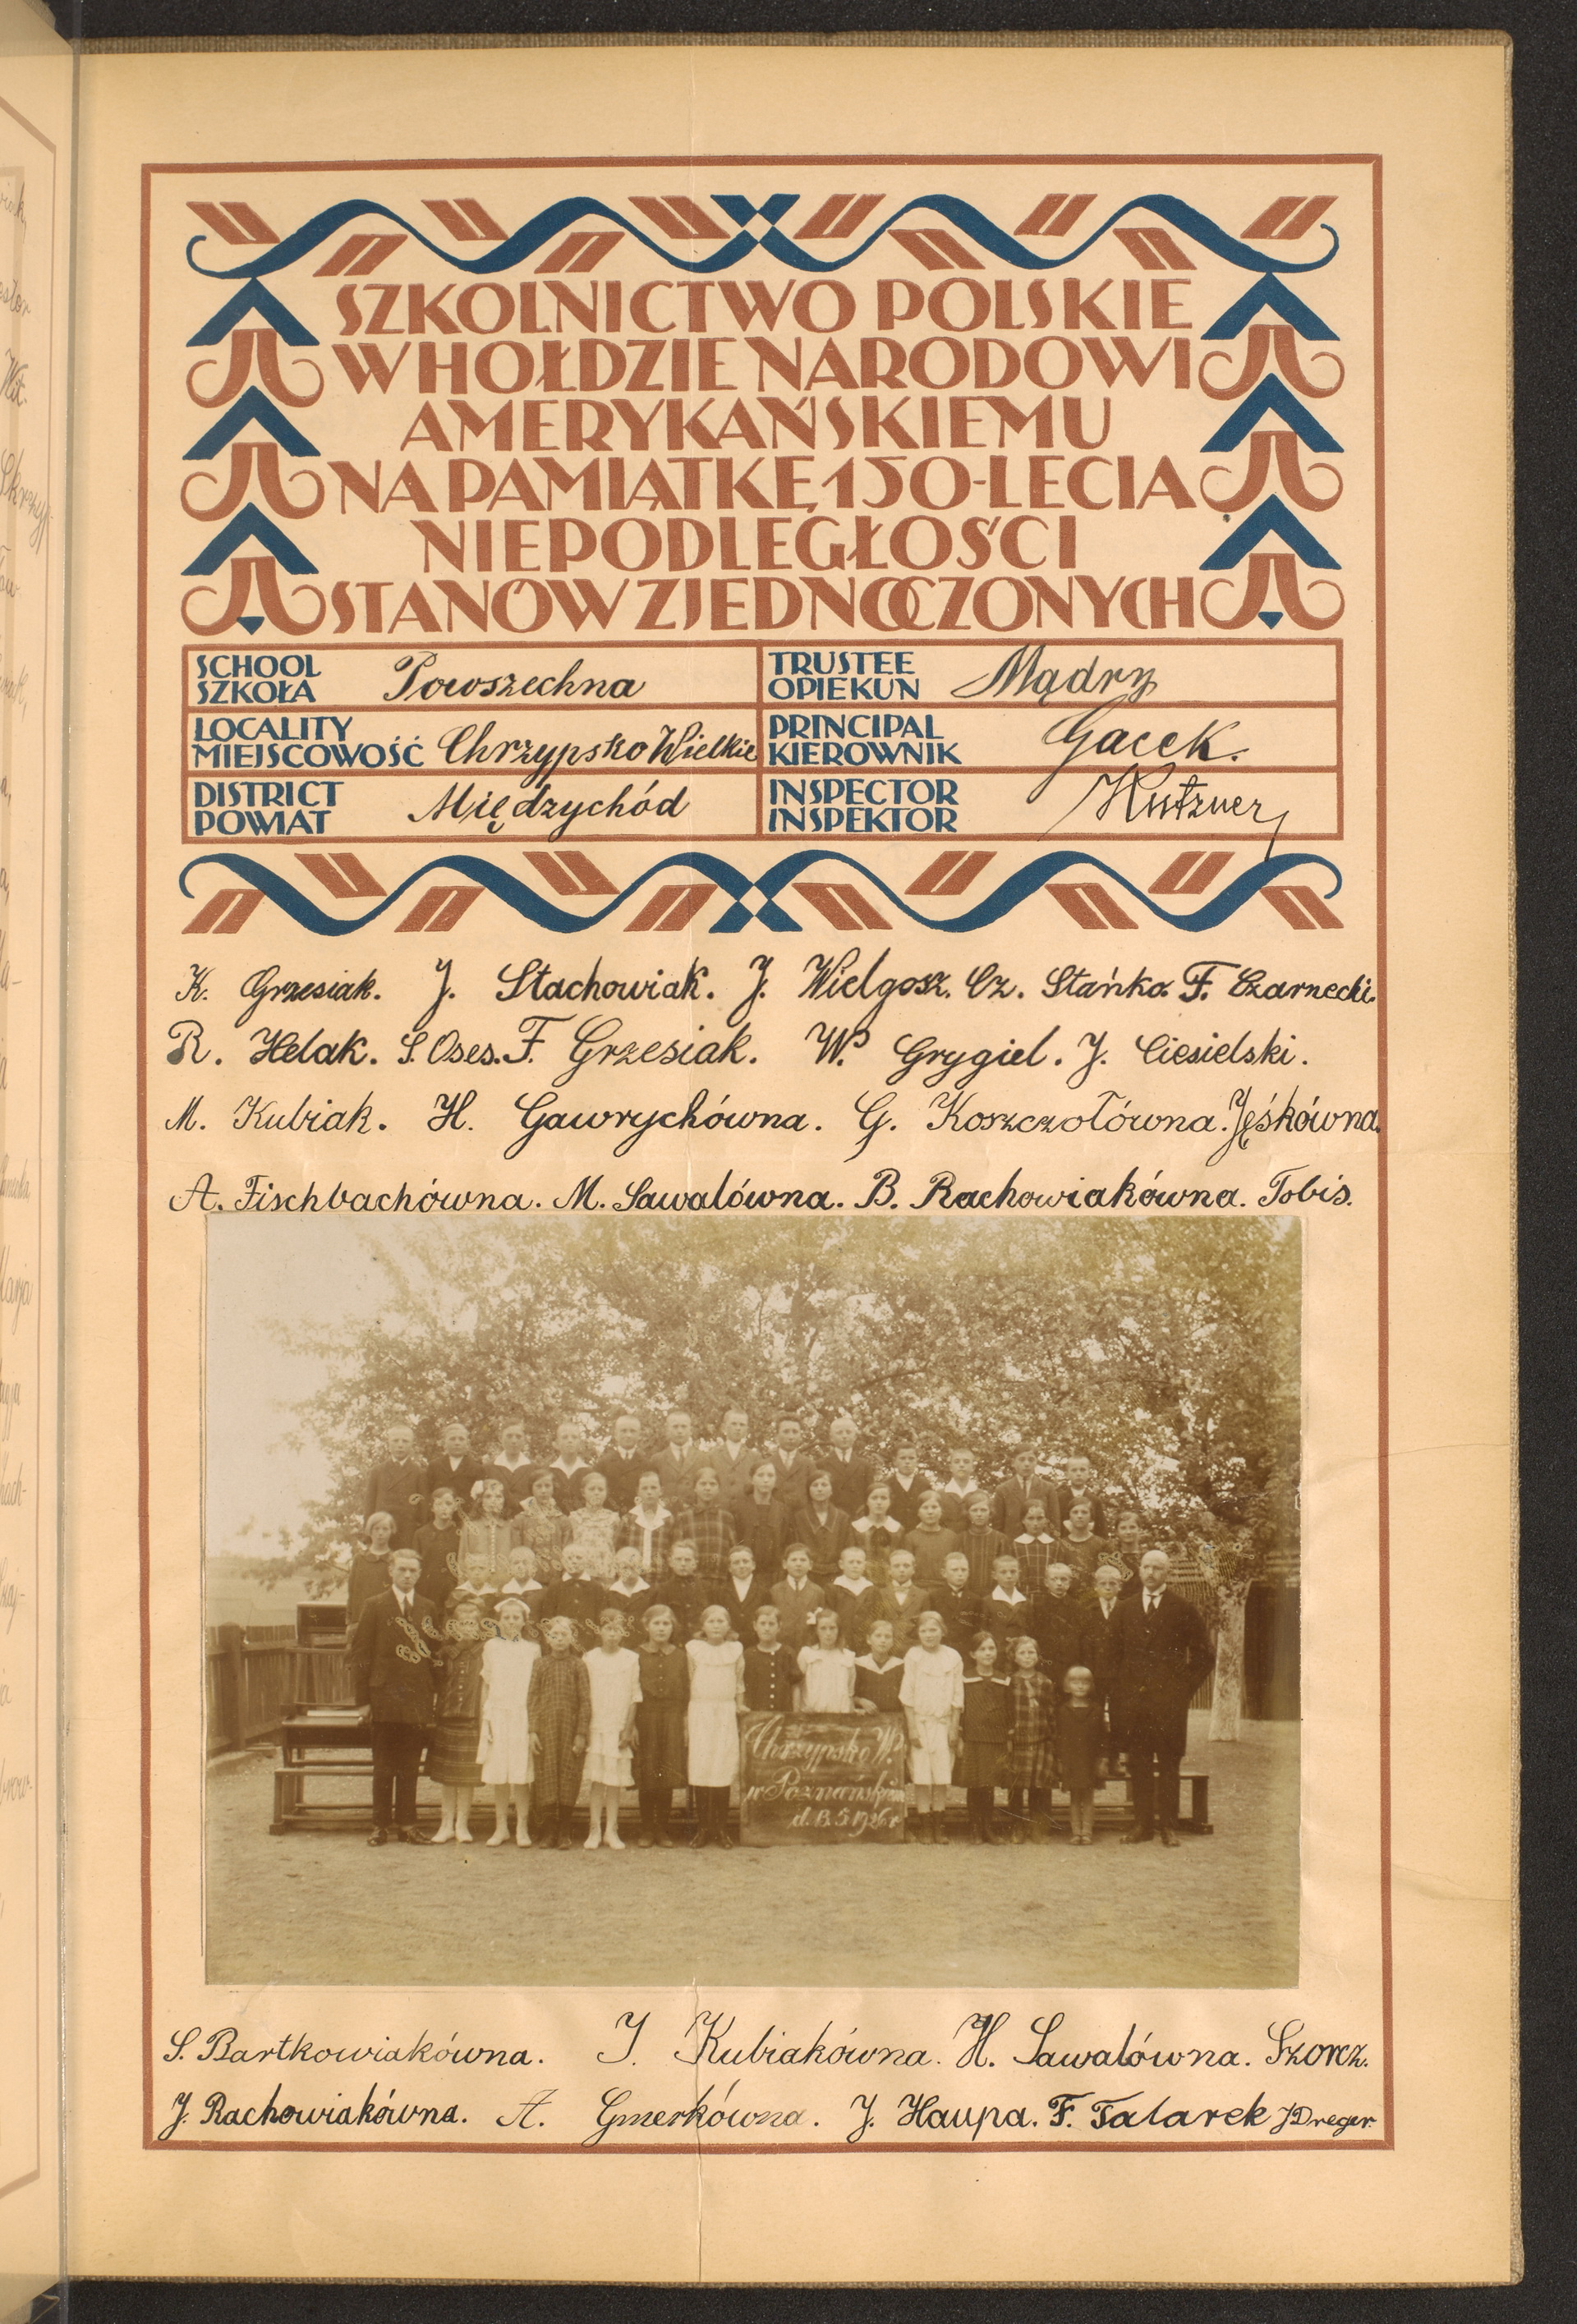 SZKOLNICTWO POLSKIE
W HOŁDZIE NARODOWI
AMERYKAŃSKIEMU
NA PAMIĄTKĘ 150-LECIA
NIEPODLEGŁOŚCI
STANÓW ZJEDNOCZONYCH
SCHOOL
SZKOŁA Powszechna
TRUSTEE
OPIEKUN Mądry
LOCALITY
MIEJSCOWOŚĆ Chrzypsko Wielkie
PRINCIPAL
KIEROWNIK Gacek.
DISTRICT
POWIAT Międzychód
INSPECTOR
INSPEKTOR Kutzner
K. Grzesiak. J. Stachowiak. J. Wielgosz. Cz. Stańko. F. Czarnecki.
R. Helak. S. Oses. F. Grzesiak. W. Grygiel. J. Ciesielski.
M. Kubiak. H. Gawrychówna. G. Koszczołówna. Jęśkówna.
A. Fischbachówna. M. Sawalówna. B. Rachowiakówna. Tobis.
Chrzypsko W.
w Poznańskiem
d. 13.5.1926 r
S. Bartkowiakówna. I. Kubiakówna. H. Sawalówna. Szorcz.
J. Rachowiakówna. A. Gmerkówna. J. Haupa. F. Talarek J Dreger.